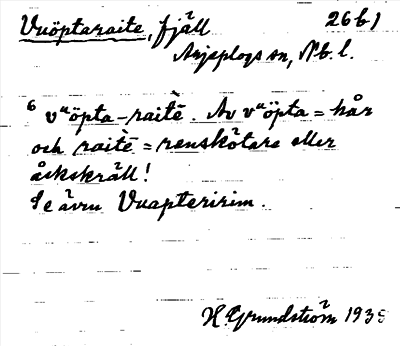 Vuöptaraite, fjäll 26 b 1
Arjeplogs sn, Nb. l.
6 vᵘöpta-raitḕ. Av vᵘöpta = hår
och raitḕ = renskötare eller
åskskräll!
Se även Vuapteririm.
H. Grundström 1938